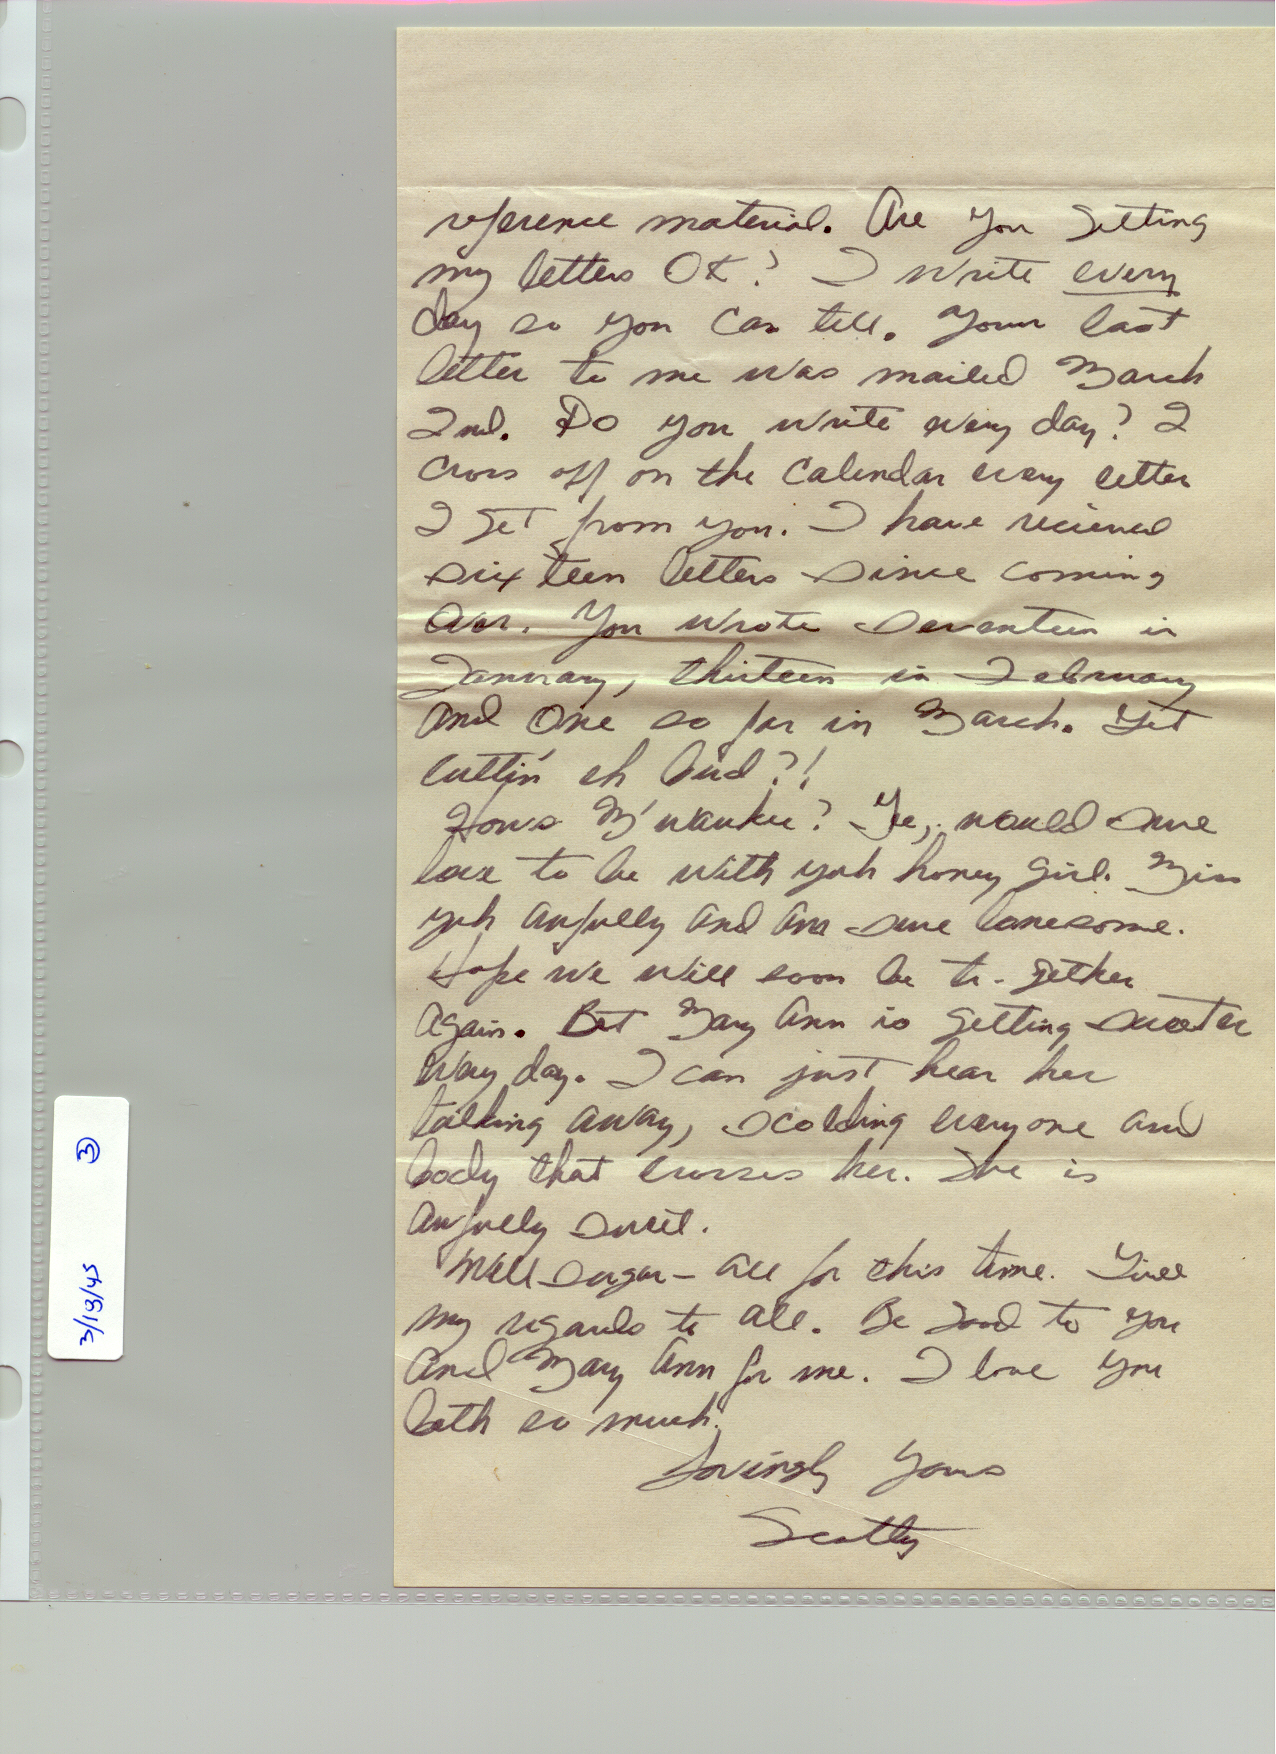 reference material. Are you getting
my letters OK? I write every
day so you can tell. Your last
letter to me was mailed March
2nd. Do you write every day? I
cross off on the calendar every letter
I get from you. I have recieved
sixteen letters since coming
over. You wrote seventeen in
January, thirteen in February
and one so far in March. Get
cuttin' eh bud?!
Hows M'waukee? Gee, would sure
love to be with yuh honey girl. Miss
yuh awfully and am sure lonesome.
Hope we will soon be to-gether
again. Bet Mary Ann is getting sweeter
every day. I can just hear her
talking away, scolding everyone and
body that crosses her. She is
awfully sweet.
Well sugar - all for this time. Give
my regards to all. Be good to you
and Mary Ann for me. I love you
both so much.
Lovingly Yours
Scotty
3/13/45 3